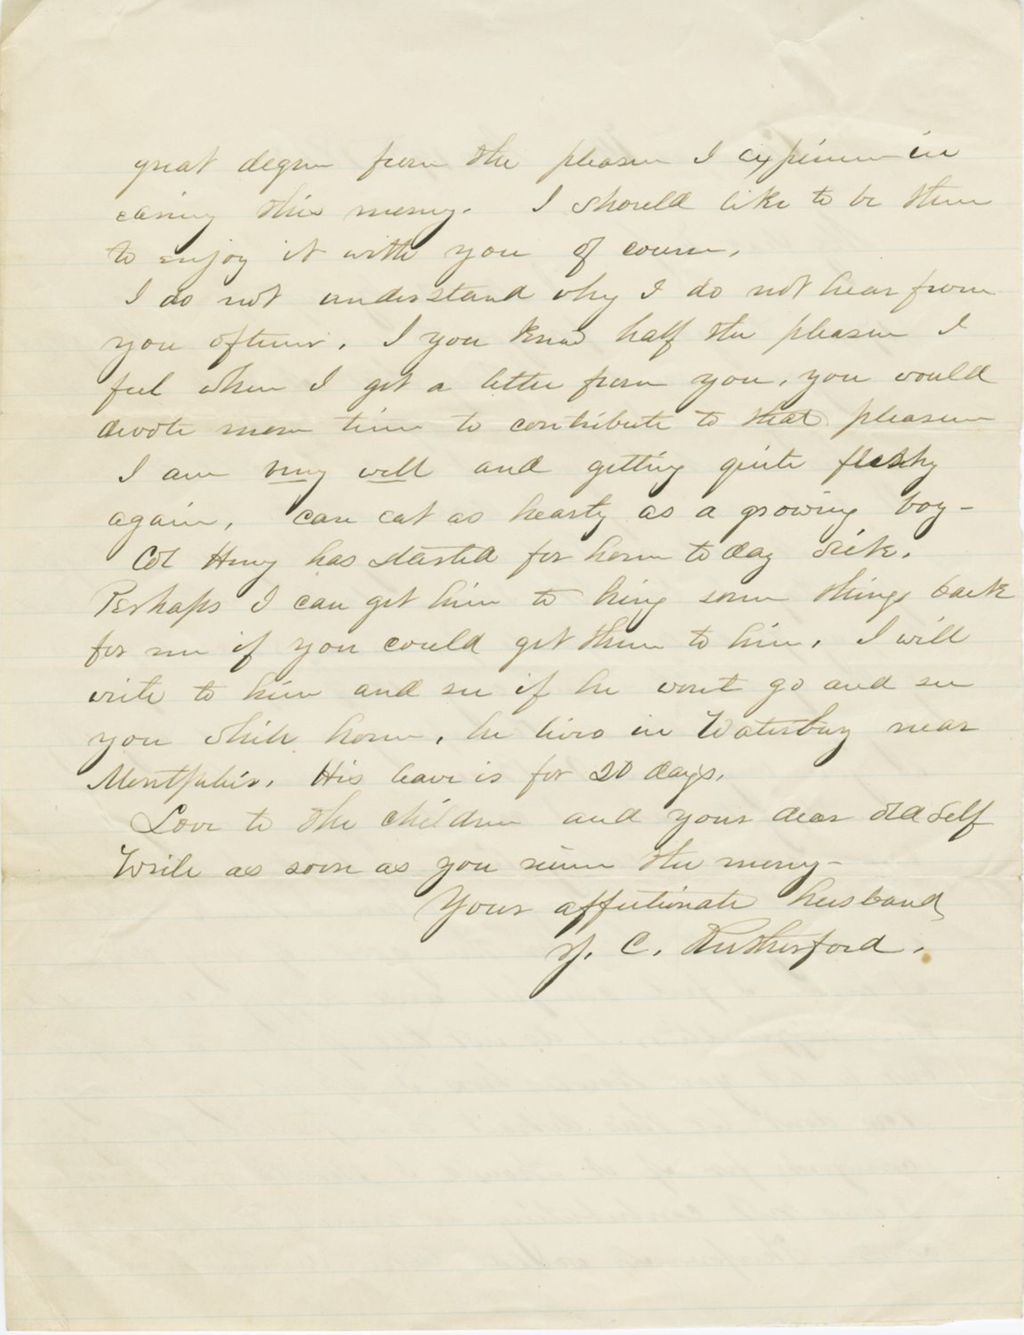 great degree from the pleasure I experience in
earning this money. I should like to be there
to enjoy it with you of course.
I do not understand why I do not hear from
you oftener. I you knew half the pleasure I
feel when I get a letter from you, you would
devote more time to contribute to that pleasure
I am very well and getting quite fleshy
again, can eat as hearty as a growing boy-
Col Henry has started for home to day sick.
Perhaps I can get him to bring some things back
for me if you could get them to him. I will
write to him and see if he wont go and see
you while home, he lives in Waterbury near
Montpelier. His leave is for 20 days.
Love to the children and your dear old self
Write as soon as you receive the money-
Your affectionate husband,
J. C. Rutherford.